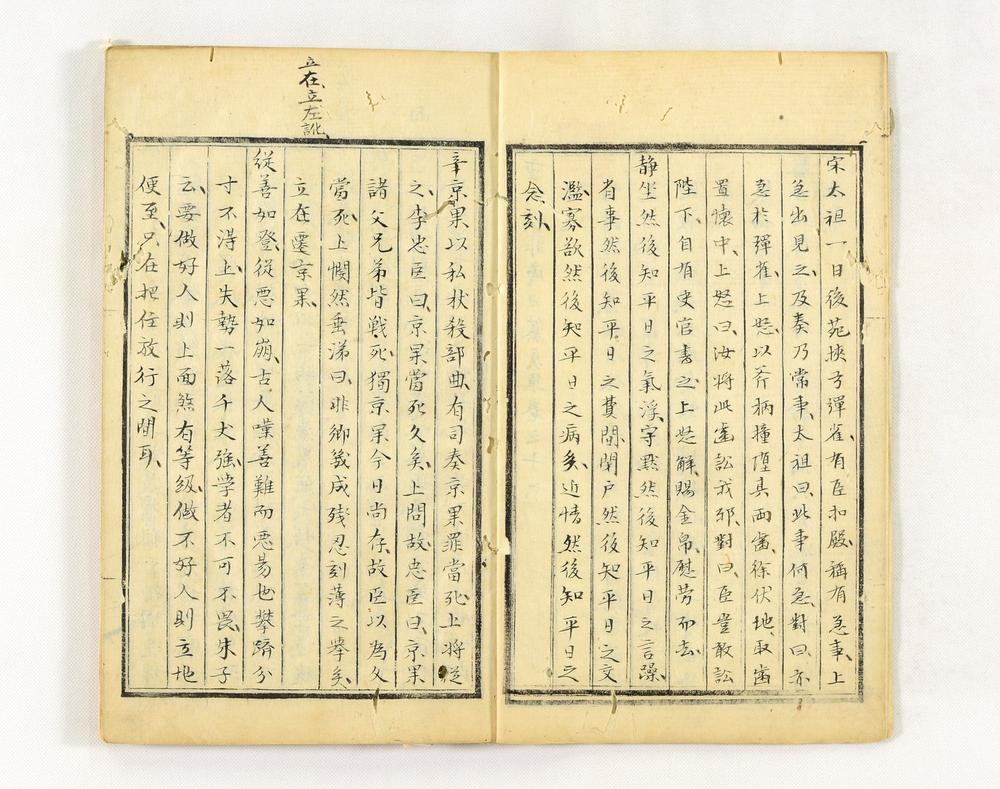 宋太祖一日後苑挾弓彈雀、有臣扣殿稱有急事、上
急出見之、及奏乃常事、太祖曰、此事何急、對曰、亦
急於彈雀、上怒、以斧柄撞墮其兩齒、徐伏地、取齒
置懷中、上怒曰、汝將此齒訟我邪、對曰、臣豈敢訟
陛下、自有史官書之、上怒解、賜金帛、慰勞而去、
靜坐然後知平日之氣浮、守默然後知平日之言躁、
省事然後知平日之費閒、閉戶然後知平日之交
濫、寡欲然後知平日之病多、近情然後知平日之
念刻、
立在、立左訛、
辛京果以私杖殺部曲、有司奏京杲罪當死、上將從
之、李忠臣曰、京杲當死久矣、上問故、忠臣曰、京果
諸父兄弟皆戰死、獨京杲今日尚存、故臣以為久
當死、上憫然垂涕曰、非卿幾成殘忍刻薄之舉矣、
立在遷京杲、
從善如登、從惡如崩、古人嘆善難而惡易也、攀躋分
寸不得上、失勢一落千丈強、学者不可不畏、朱子
云、要做好人、則上面煞有等級、做不好人、則立地
便至、只在把住放行之間耳、